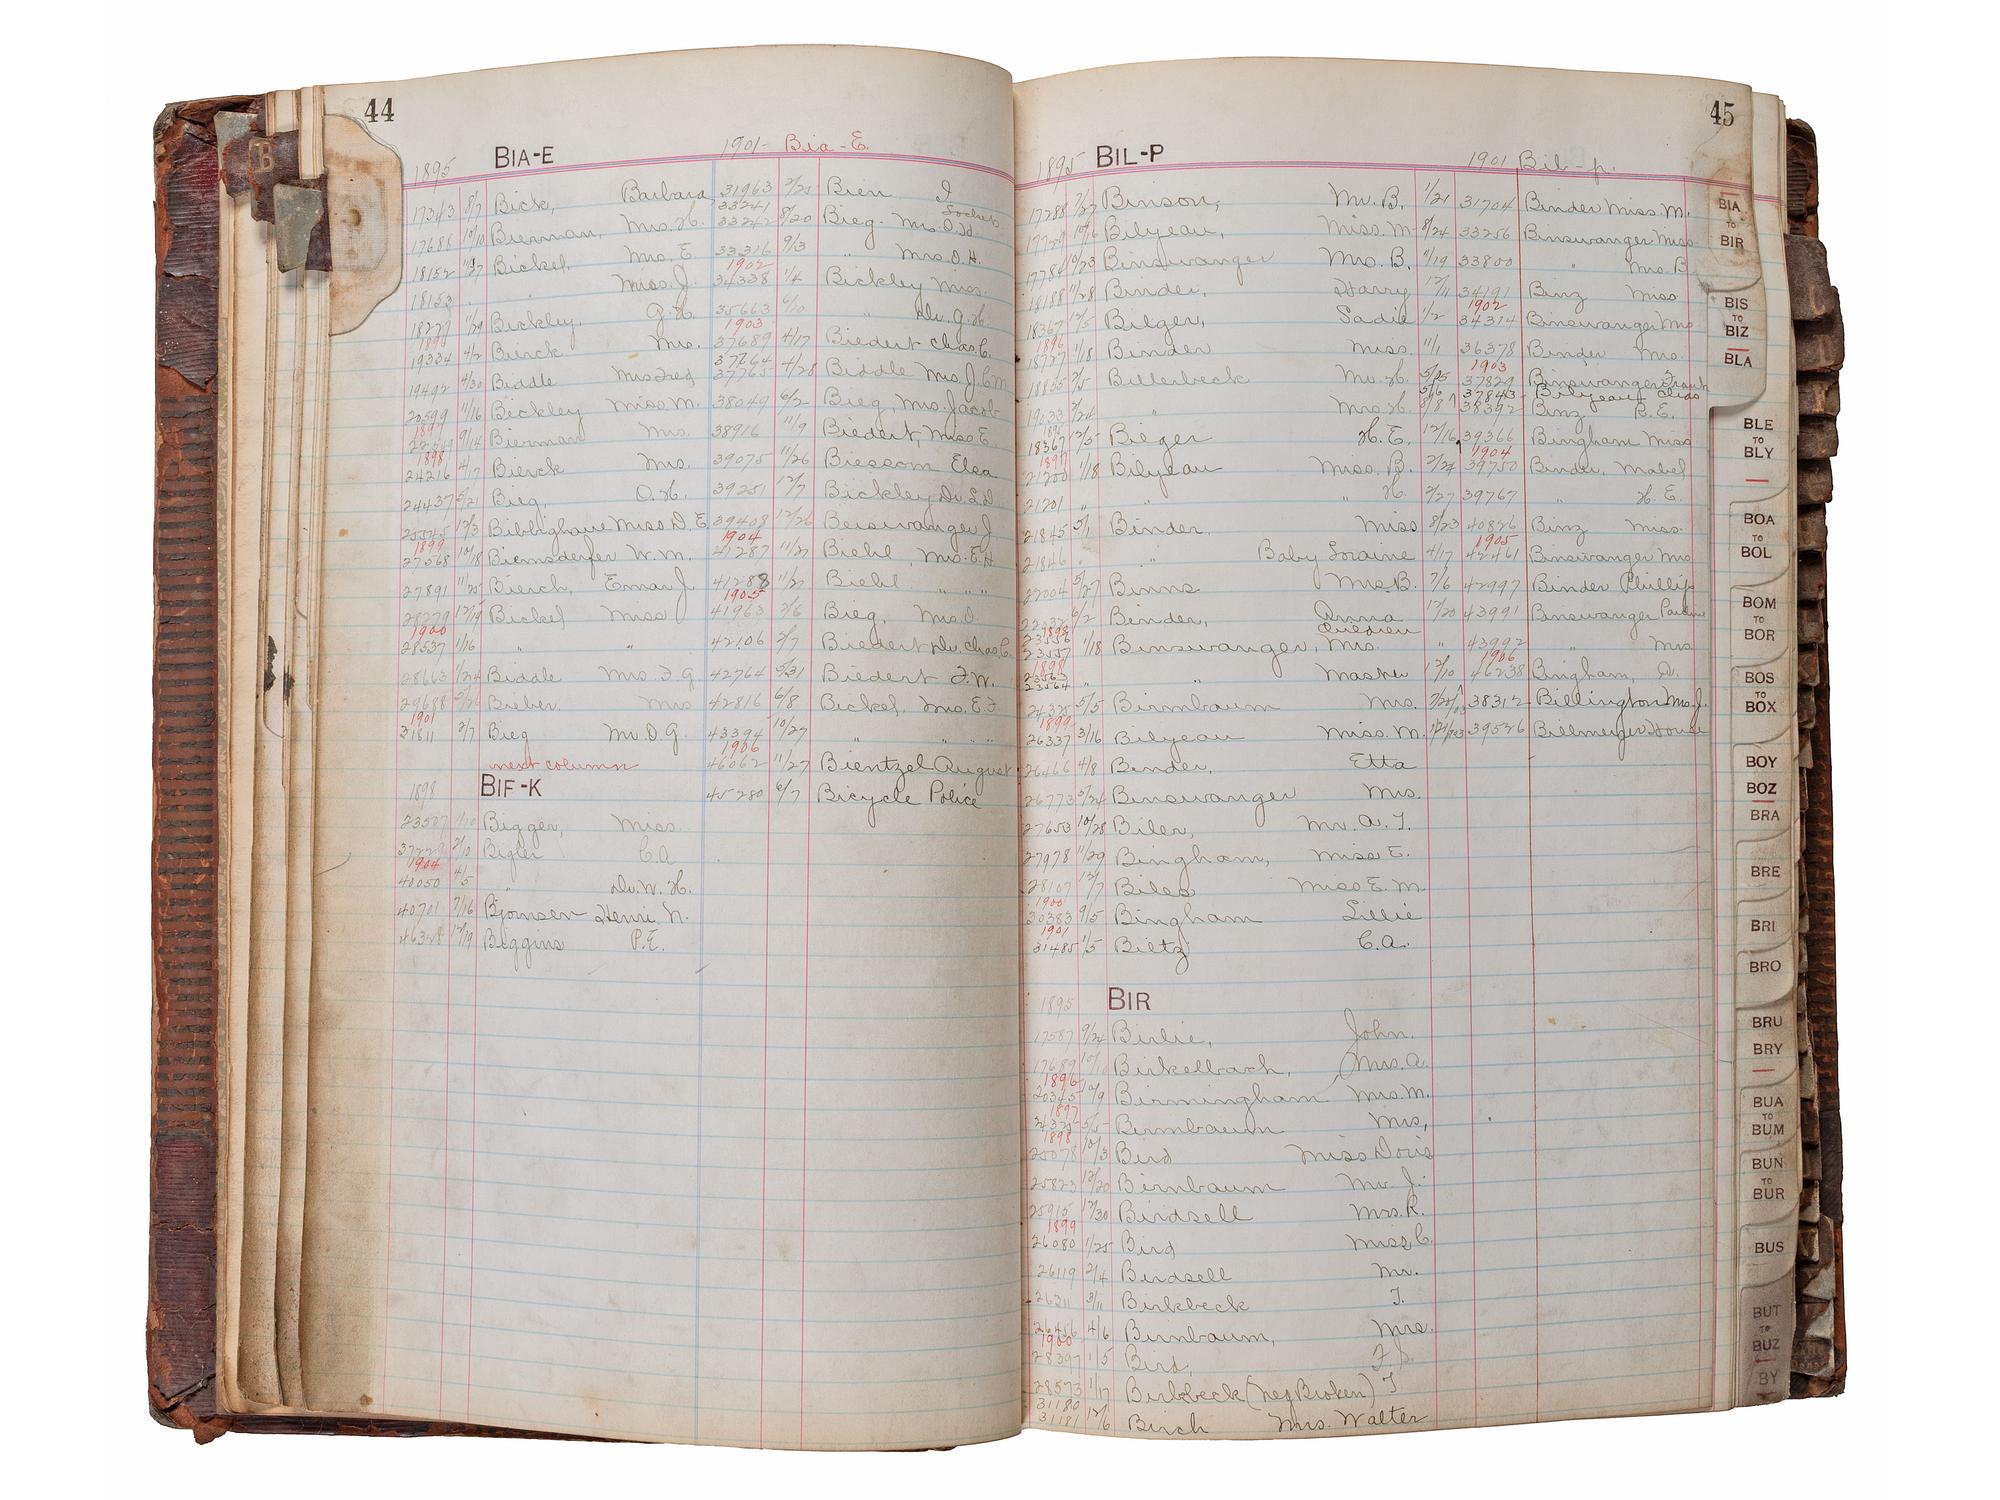 44
1895 BIA-E 1901- Bia-E.
17343 8/7 Bick, Barbara
17688 10/10 Bierman, Mrs. H.
18152 11/27 Bickel, Mrs. E.
18153 " " Miss J.
18227 11/29 Bickley, G. H.
1896
19334 4/2 Bierck Mrs.
19492 4/30 Biddle Mrs Fred
20599 11/16 Bickley Miss M.
9/14 Bierman Mrs.
1898
24216 4/7 Bierck Mrs.
24437 5/21 Bieg, O. H.
25545 12/3 Bibbighaus Miss D. E.
1899
27568 10/18 Biemsderfer W. M.
27891 11/25 Bierch, Emar J.
28279 12/19 Bickel Miss
1900
28537 1/16 " "
28663 1/24 Biddle Mrs. F. G
29688 5/26 Bieber Mrs
1901
31811 2/7 Bieg Mr. O. G.
next column
1898 BIF-K
23507 1/10 Bigger, Miss.
2/10 Bigler C. A
1904
40050 4/5 " Dr. W. H.
40701 7/16 Bjornsen Henri N.
46328 12/19 Biggins P. E.
31963 2/21 Bien I
33241
33242 8/20 Bieg Mrs. O. H.
33316 9/3 " Mrs. O. H.
1902
34338 1/4 Bickley Miss.
35663 6/10 " Dr. G. H.
1903
37689 4/17 Biedert Chas. C.
37764
37765 4/28 Biddle Mrs. J. C. M
38049 6/2 Bieg, Mrs. Jacob
38916 11/9 Biedert, Miss E.
39075 11/26 Biessom Elsa
39251 12/7 Bickley Dr. L. D.
39408 12/26 Beiswanger J
1904
41287 11/27 Biehl, Mrs. E. H
41288 11/27 Biehl " " "
1905
41963 2/6 Bieg, Mrs. O.
42106 2/7 Biedert Dr. Chas. C.
42764 5/31 Biedert F. W.
42816 6/8 Bickel, Mrs. E. F.
43394 10/27 " " " "
1906
46062 11/27 Bientzel August
45280 6/7 Bicycle Police
45
1895 BIL-P 1901 Bil-p.
17288 7/27 Binson, Mr. B.
17729 10/16 Bilyeau, Miss. M
17784 10/23 Binswanger Mrs. B.
18188 11/28 Binder, Harry
18367 12/5 Bilger, Sadie
1896
18727 1/18 Binder Miss.
18835 2/5 Billerbeck Mr. H.
19033 2/24 " Mrs. H.
18367 12/5 Bilger H. E.
1897
21200 1/18 Bilyeau Miss. B.
21201 " " " H.
21845 5/1 Binder, Miss
21846 " " Baby Loraine
22004 5/27 Binns Mrs. B.
6/2 Binder, Anna
1898 Children
23557 1/18 Binswanger, Mrs.
1898
23563
23564 " " Master
24325 5/5 Birmbaum Mrs.
1899
26337 3/16 Bilyeau Miss. M.
26466 4/8 Binder, Etta
26773 5/24 Binswanger Mrs.
27653 10/28 Biler, Mr. A. T.
27978 11/29 Bingham, Miss E.
28107 12/7 Biles Miss E. M.
1900
30383 9/5 Bingham Lillie
1901
31485 1/5 Biltz C. A.
1/21 31704 Binder Miss. M.
8/24 33256 Binswanger Miss
11/19 33800 " Mrs. B
12/11 34191 Binz Miss
1902
1/2 34314 Binswanger Mrs
11/1 36378 Binder Mrs.
1903
5/05 37829 Binswanger Frank
5/6 37843 Bilyeau Chas
8/8 38392 Binz B. E.
12/16 39366 Bingham Miss
1904
2/24 39750 Binder, Mabel
2/27 39767 " H. E.
8/23 40826 Binz Miss.
1905
4/17 42461 Binswanger Mrs
7/6 42997 Binder Phillip
12/20 43991 Binswanger Pauline
" 43992 " Mrs
1906
12/10 46238 Bingham, A.
38312 Billington Mrs. J.
39526 Billmeyer House
1895 BIR
17587 9/24 Birlie, John.
17689 10/10 Birkelbach, Mrs. A.
1896
20345 10/9 Birmingham Mrs. M.
1897
24325 5/5 Birmbaum Mrs,
1898
25078 10/3 Bird Miss Doris
25823 12/20 Birnbaum Mr. J.
25915 12/30 Birdsell Mrs. R.
1899
26080 1/25 Bird Miss C.
26119 2/4 Birdsell Mr.
26311 3/11 Birkbeck T.
26456 4/6 Birnbaum, Mrs.
1900
28397 1/5 Bird, F. S.
28573 1/17 Birkbeck (neg Broken) T
31180
31181 12/6 Birch Mrs. Walter
B
BIA
TO
BIR
BIS
TO
BIZ
BLA
BLE
TO
BLY
BOA
TO
BOL
BOM
TO
BOR
BOS
TO
BOX
BOY
BOZ
BRA
BRE
BRI
BRO
BRU
BRY
BUA
TO
BUM
BUN
TO
BUR
BUS
BUT
TO
BUZ
BY